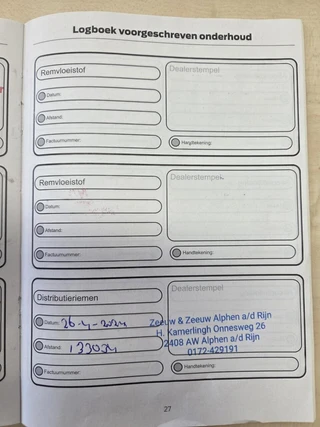 Logboek voorgeschreven onderhoud
Remvloeistof
Dealerstempel
Datum:
Afstand:
Factuurnummer:
Handtekening:
Remvloeistof
Dealerstempel
Datum:
Afstand:
Factuurnummer:
Handtekening:
Distributieriemen
Dealerstempel
Datum: 26-4-2024
Zeeuw & Zeeuw Alphen a/d Rijn
H. Kamerlingh Onnesweg 26
Afstand:
2408 AW Alphen a/d Rijn
0172-429191
Factuurnummer:
Handtekening:
27